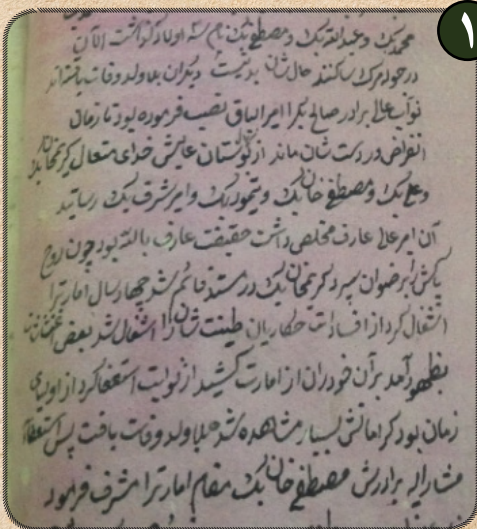 ۱
محمد بک و عبدالله بک و مصطفی بک نام سه اولاد گذاشت الآن
در حوادمرک ساکنند حال شان بد نیست دیگران بلا ولد وفات یافته‌اند
نواب عالی برادر صالح بکرا امیر الباق نصیب فرموده بود تا زمان
انقراض در دست شان ماند از گلستان عایش خدای متعال کریمخان بک
و علی بک و مصطفی خان بک و تیمور بک و امیر شرف بک رسانید
آن امر عالی عارف مخلص داشت حقیقت عارف بالله بود چون روح
پاکش بر ضوان سپرد کریمخان بک در مسند قائم شد چهار سال امارترا
اشتغال کرد از افساد حکاریان طینت شان را اشتعال شد بعض
بظهور آمد بر آن خودران از امارت کشید از نوابت استعفا کرد از اولیای
زمان بود کراماتش بسیار مشاهده شد بلا ولد وفات یافت پس استعفا
مشارالیه برادرش مصطفی خان بک مقام امارترا مشرف فرمود